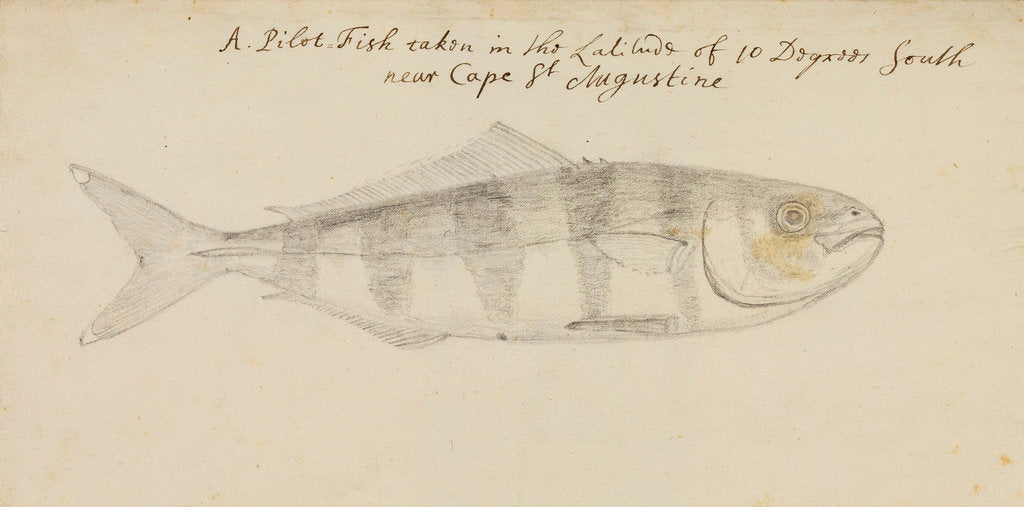 A. Pilot=Fish taken in the Latitude of 10 Degrees South
near Cape St Augustine